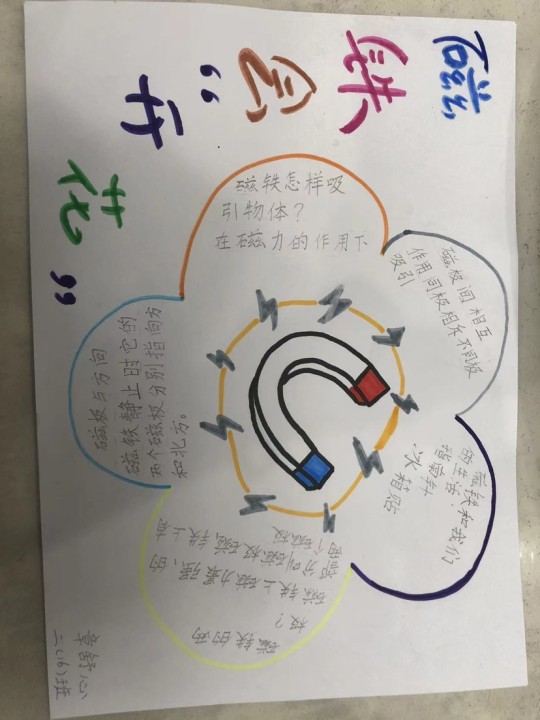 磁铁会“开花”
磁铁怎样吸
引物体？
在磁力的作用下
磁极间相互
作用同极相斥不同极
吸引
磁铁和我们
的生活：
指南针
冰箱贴
磁铁的两
极？
磁铁上磁力最强的
部分叫磁极,磁铁上有
两个磁极
磁极与方向
磁铁静止时它的
两个磁极分别指南方
和北方。
章舒心
二(16)班